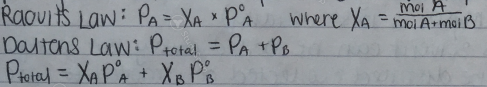 Raoults Law: P_A = X_A × P°_A where X_A = mol A / mol A + mol B
Daltons Law: P_total = P_A + P_B
P_total = X_A P°_A + X_B P°_B